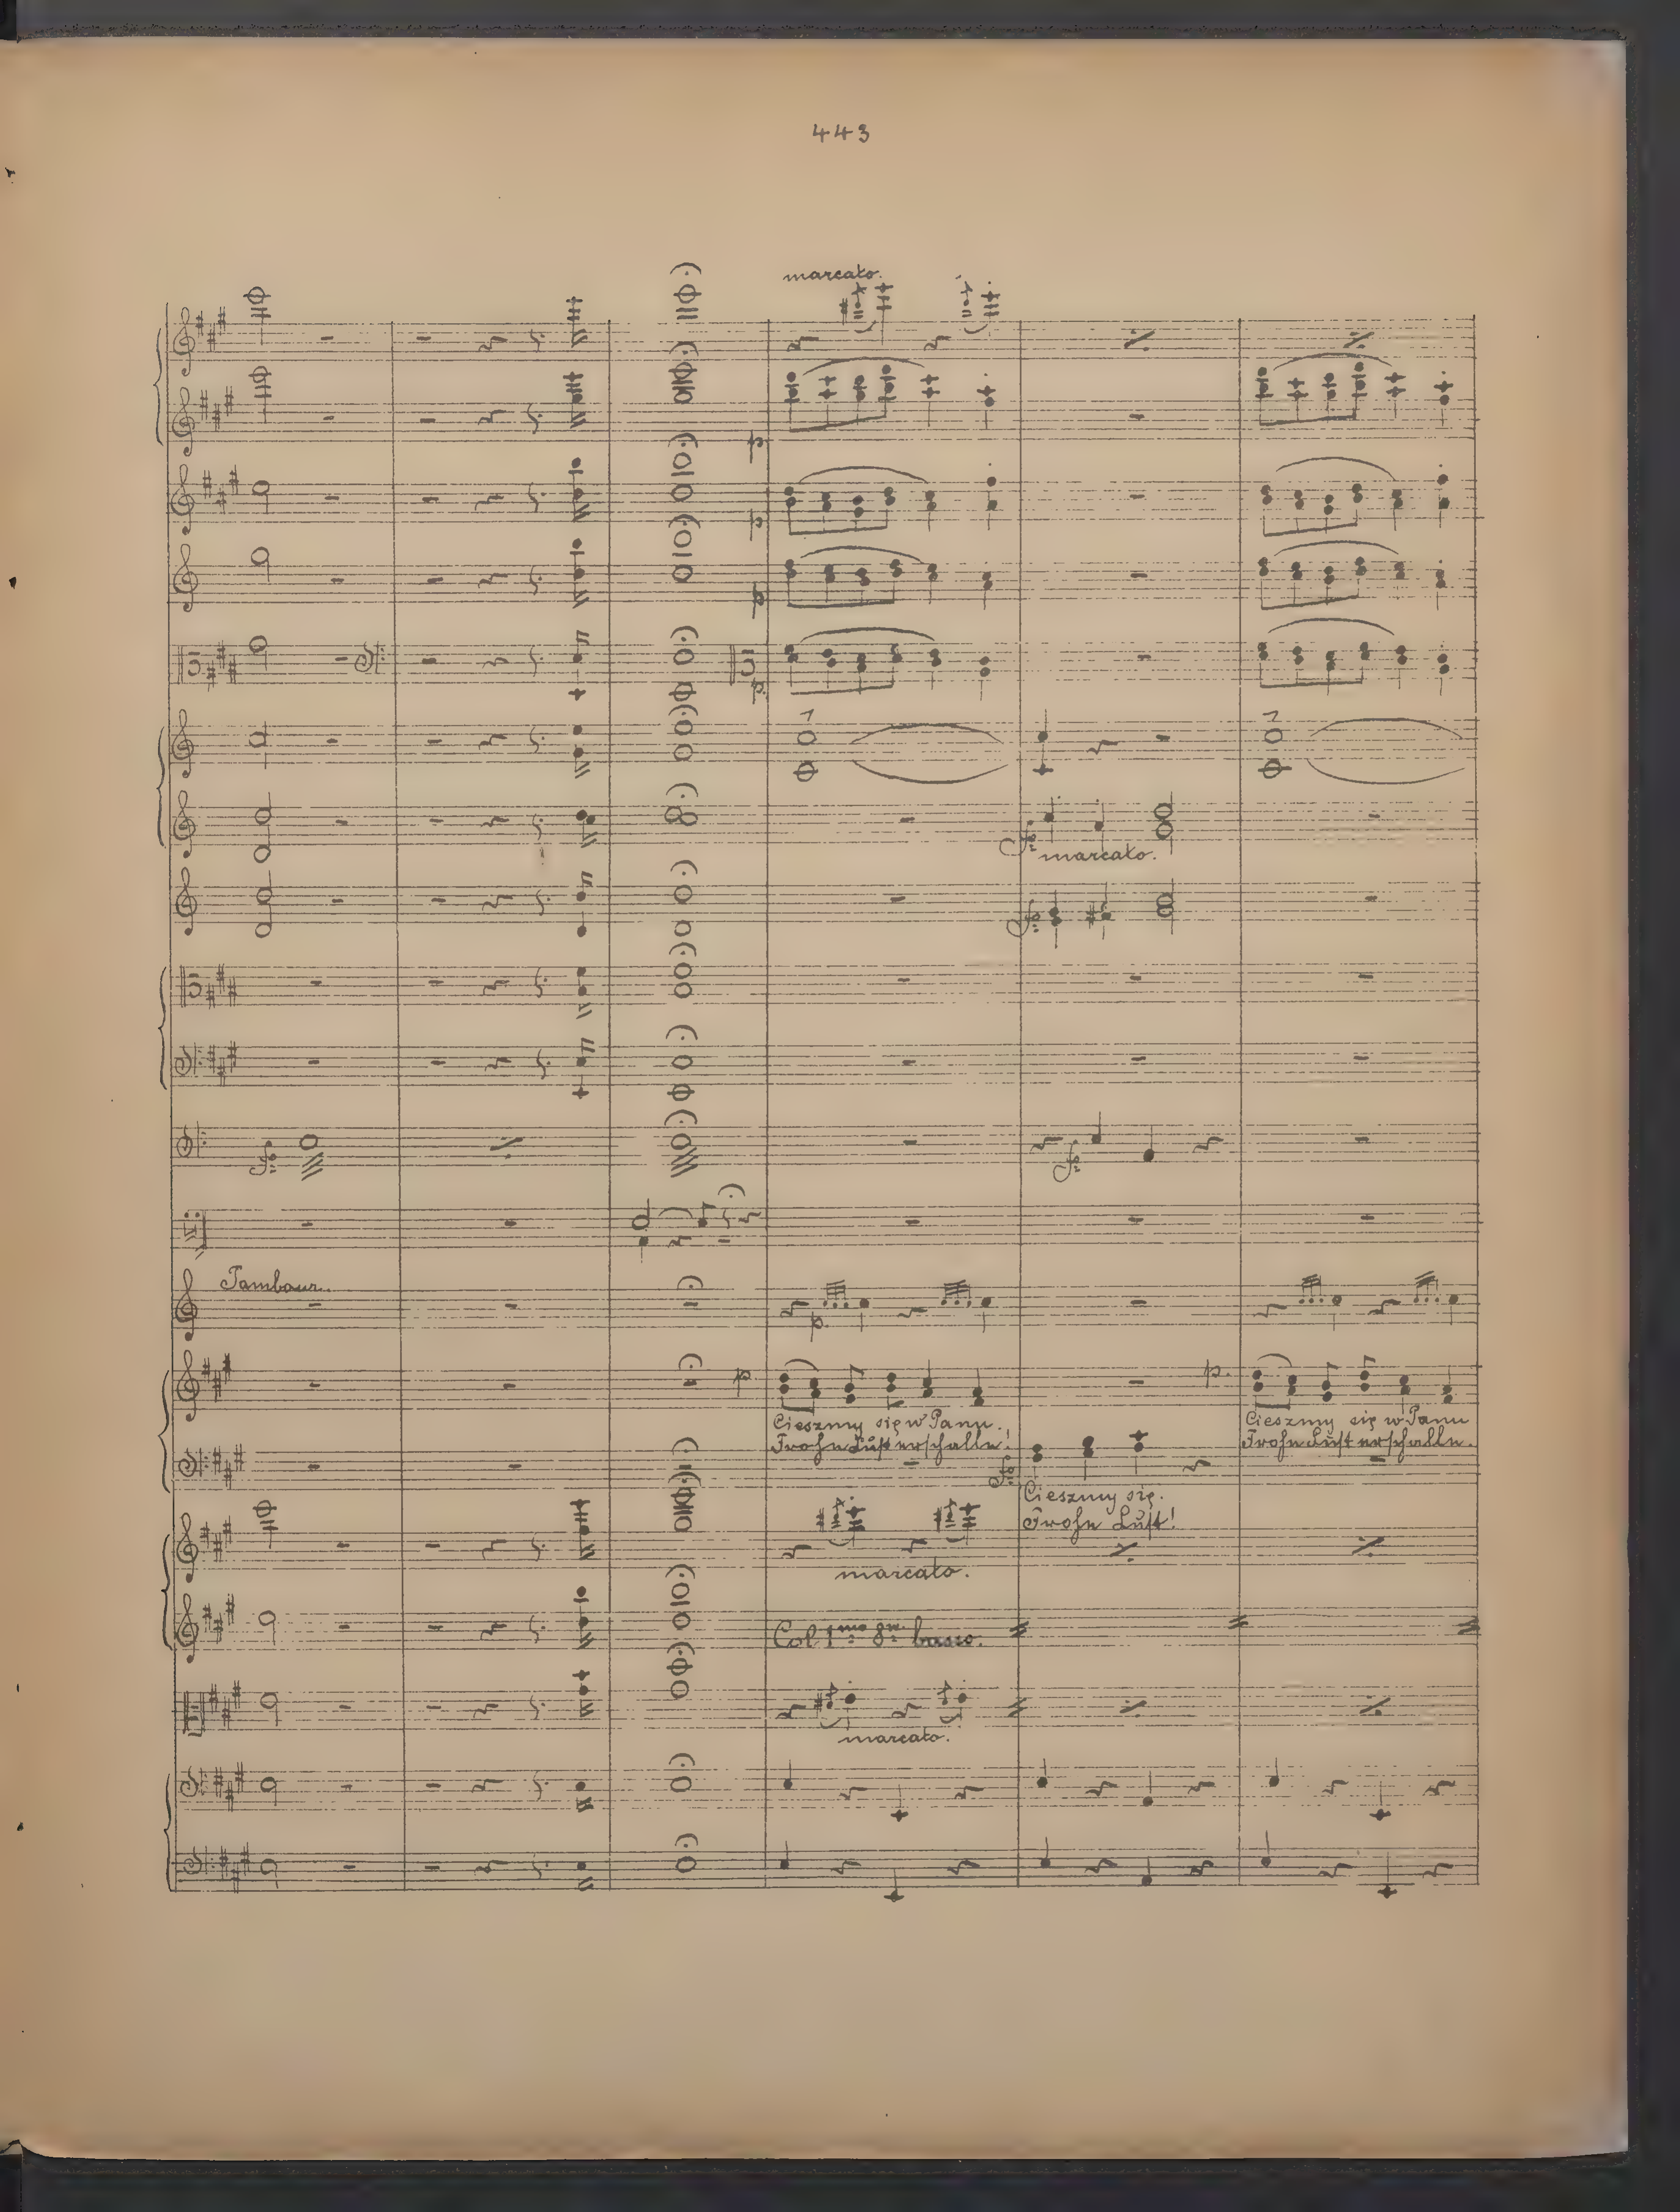 443
marcato.
p
p
p
p.
marcato.
Tambour.
p.
p.
p.
Cieszmy się w Panu.
Frohe Lust erschalle!
Cieszmy się w Panu
Frohe Lust erschalle.
Cieszmy się.
Frohe Lust!
marcato.
Col 1mo 8va basso.
marcato.